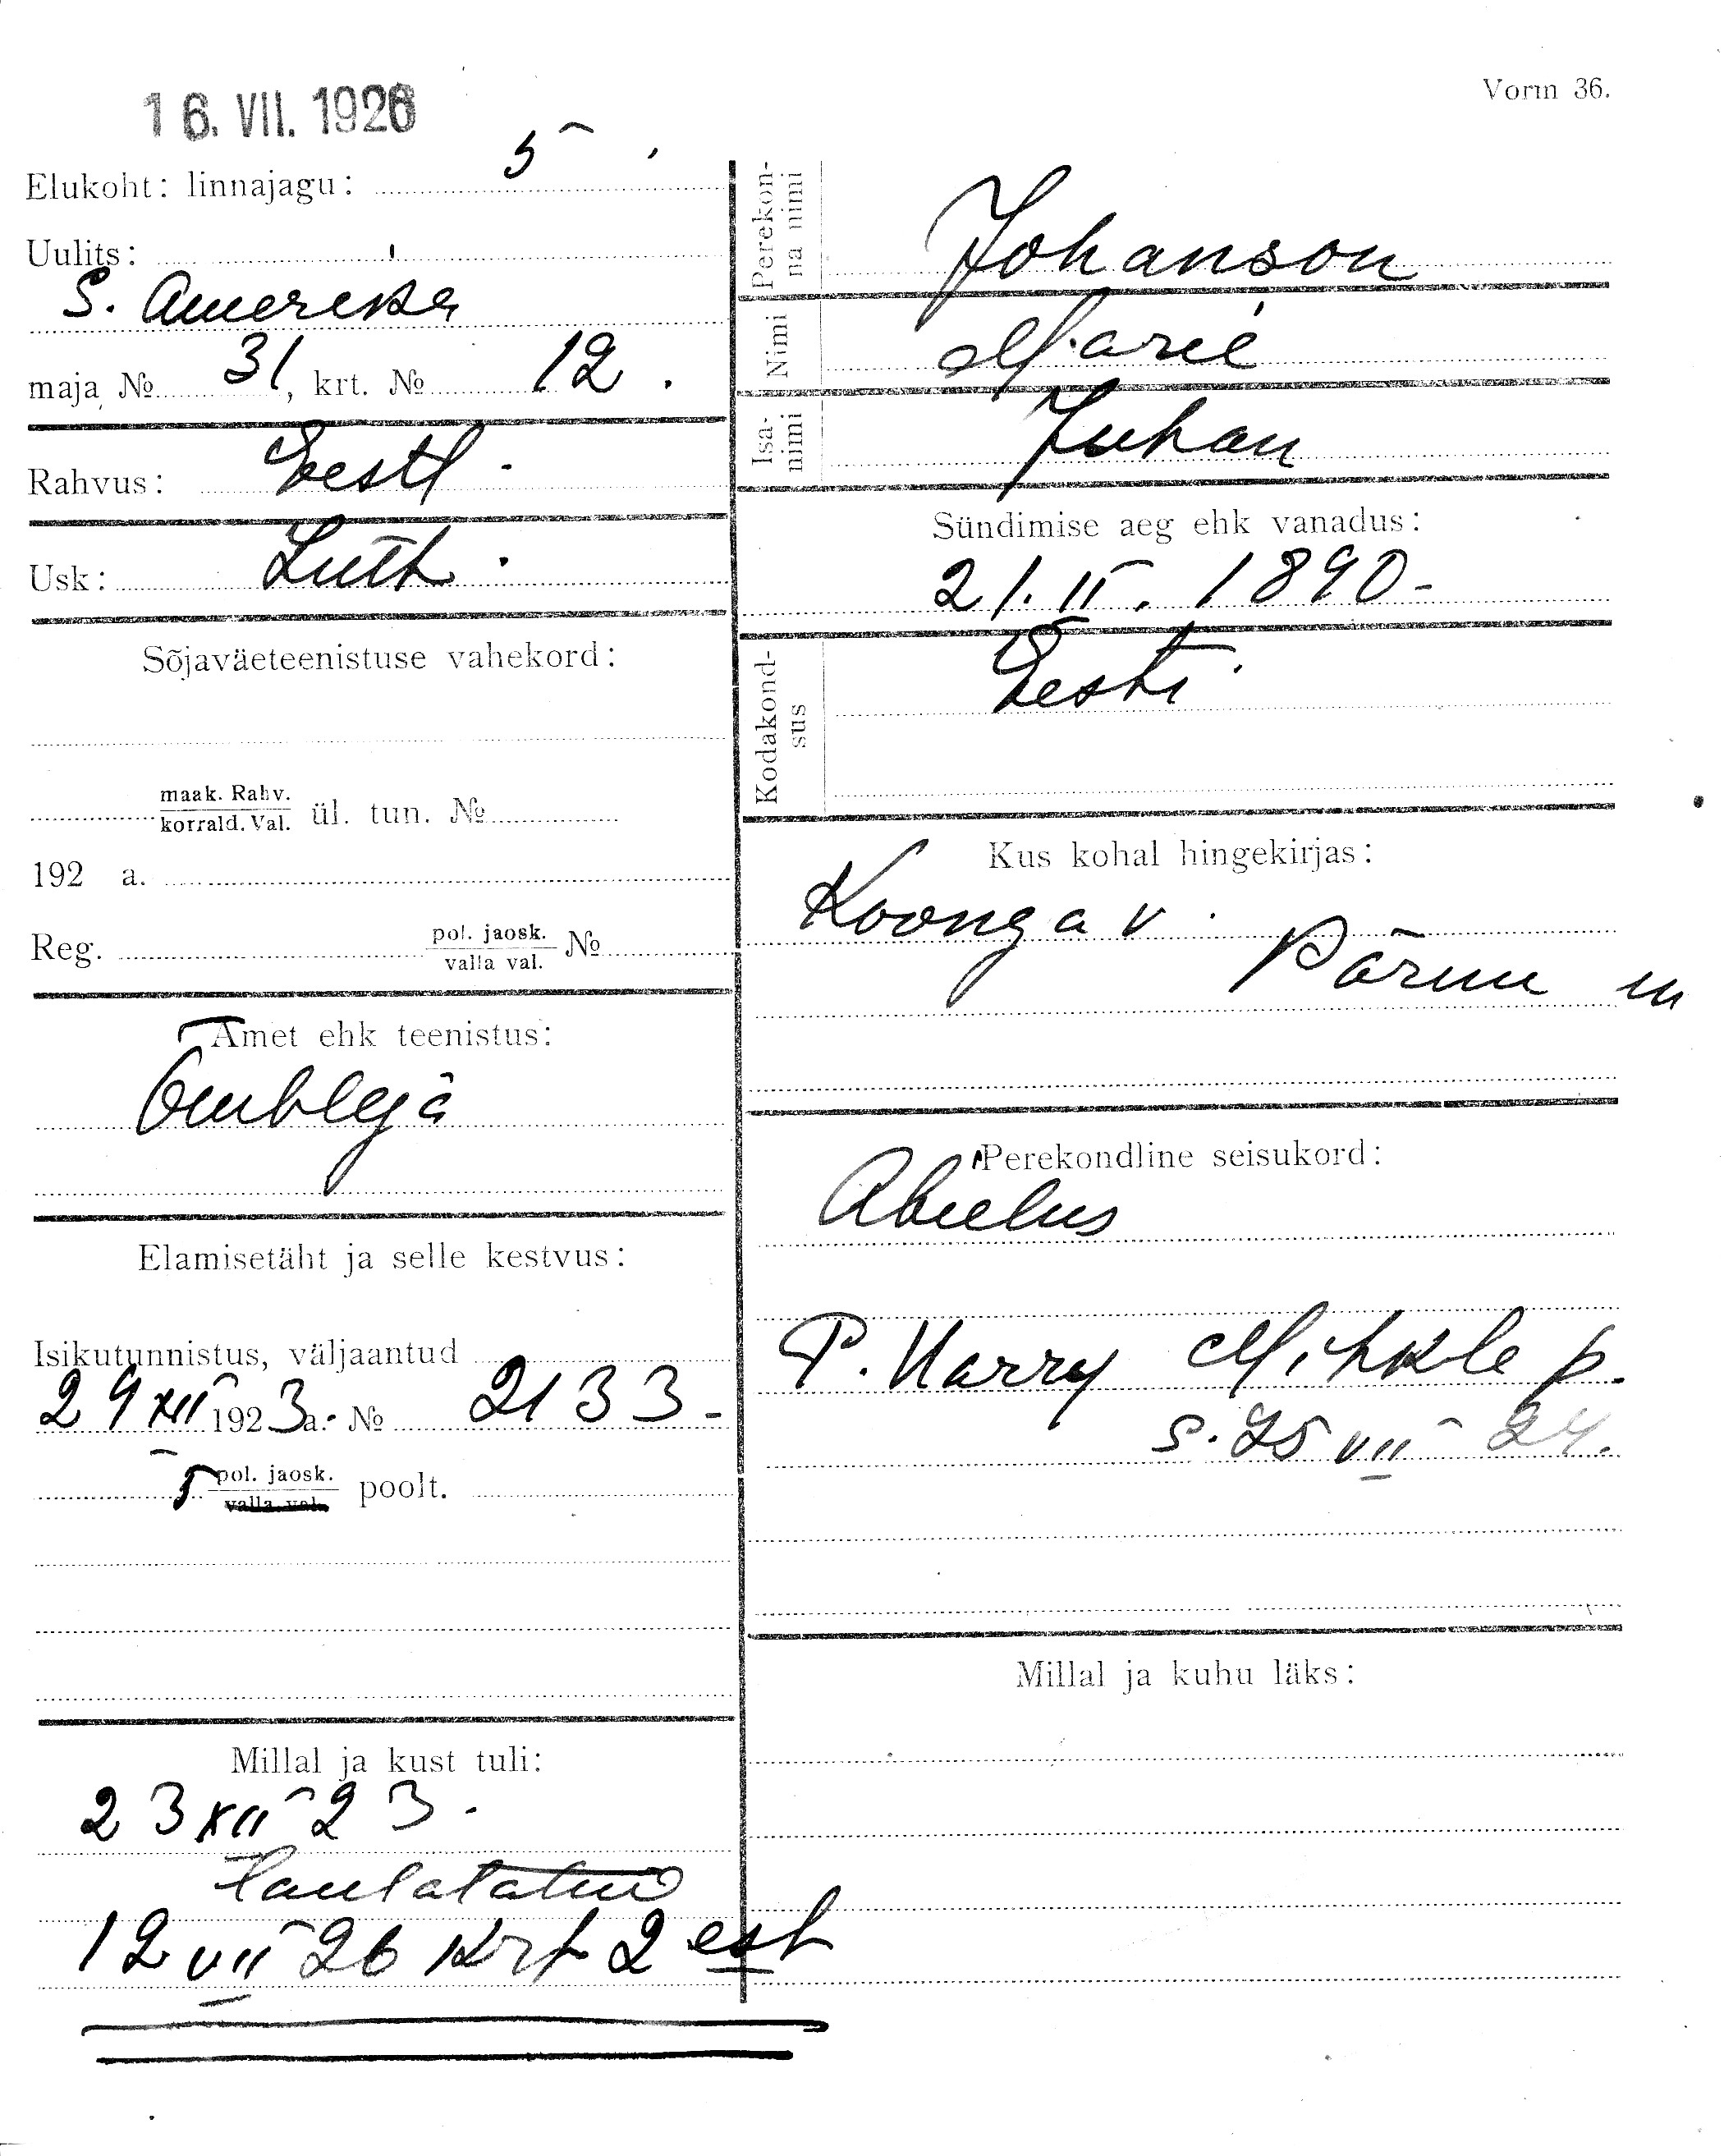 16. VII. 1926
Vorm 36.
Elukoht: linnajagu: 5
Uulits:
S. Amereka
maja № 31, krt. № 12.
Rahvus: Eesti
Usk: Luth
Sõjaväeteenistuse vahekord:
maak. Rahv.
korrald. Val. ül. tun. №
192 a.
Reg. pol. jaosk.
valla val. №
Amet ehk teenistus:
Õmbleja
Elamisetäht ja selle kestvus:
Isikutunnistus, väljaantud
29 XII 1923 a. № 2133 -
5 pol. jaosk.
valla val. poolt.
Millal ja kust tuli:
23 XII 23.
12 VII 26 krt 2 est
Perekon-
na nimi Johanson
Nimi Marie
Isa-
nimi Juhan
Sündimise aeg ehk vanadus:
21. II. 1890 -
Kodakond-
sus Eesti
Kus kohal hingekirjas:
Koonga v.
Pärnu m
Perekondline seisukord:
Abielus
P. Harry Mihkle p.
s. 25 VII 24.
Millal ja kuhu läks: